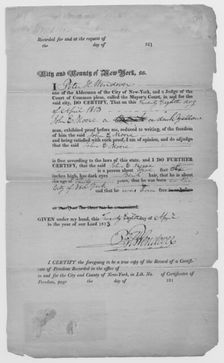 Recorded for and at the request of
the day of 181
City and County of New-York, ss.
I Peter H. Wendover
one of the Aldermen of the City of New-York, and a Judge of the
Court of common pleas, called the Mayor's Court, in and for the
said city, DO CERTIFY, That on this Twenty Eighth day
of April 1813
John E Moore a dark yellow
man, exhibited proof before me, reduced to writing, of the freedom
of him the said John E Moore
and being satisfied with such proof, I am of opinion, and do adjudge
that the said John E Moore
is free according to the laws of this state. and I DO FURTHER
CERTIFY, that the said John E Moore
is a person about feet
inches high, has dark eyes hair, that he is about
the age of years, that he was born in the
City of New York
and that he was born free
GIVEN under my hand, this Twenty Eighth day of April
in the year of our Lord 1813
P H Wendover
I CERTIFY the foregoing to be a true copy of the Record of a Certifi-
cate of Freedom Recorded in the office of
in and for the City and County of New-York, in Lib. No. of Certificates of
Freedom, page the day of 181